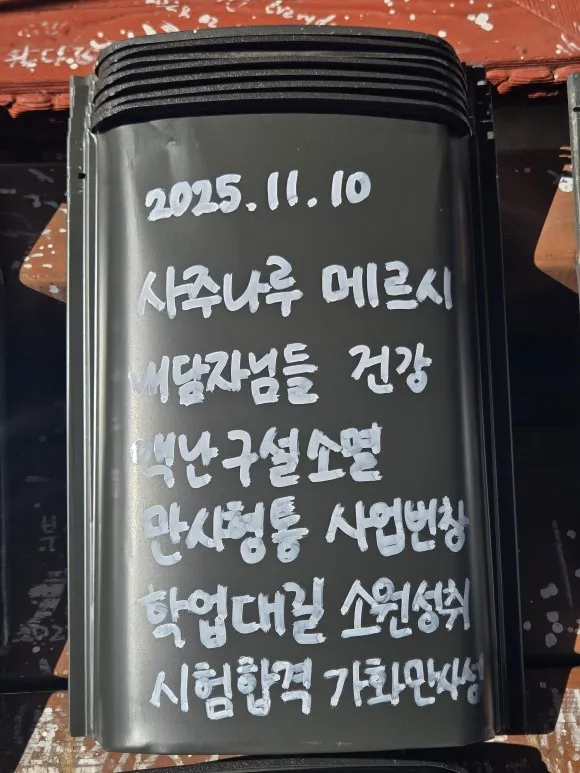 2025.11.10
사주나루 메르시
내담자님들 건강
액난구설소멸
만사형통 사업번창
학업대길 소원성취
시험합격 가화만사성